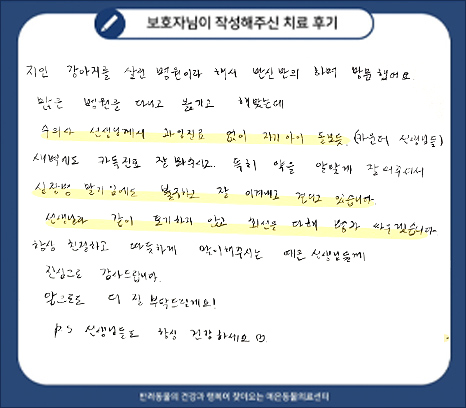 보호자님이 작성해주신 치료 후기
지인 강아지를 살린 병원이라 해서 반신반의 하며 방문했어요
많은 병원을 다니고 옮기고 해봤는데
수의사 선생님께서 과잉진료 없이 자기 아이 돌보듯. (카운터 선생님들)
새벽에도 카톡진료 잘 봐주시고. 특히 약을 알맞게 잘 써주셔서
심장병 말기임에도 불구하고 잘 이겨내고 견디고 있습니다.
선생님과 같이 포기하지 않고 최선을 다해 병과 싸우겠습니다.
항상 친절하고 따뜻하게 맞이해주시는 예은 선생님들께
진심으로 감사드립니다.
앞으로도 더 잘 부탁드릴게요!
PS 선생님들도 항상 건강하세요
반려동물의 건강과 행복이 찾아오는 예은동물의료센터